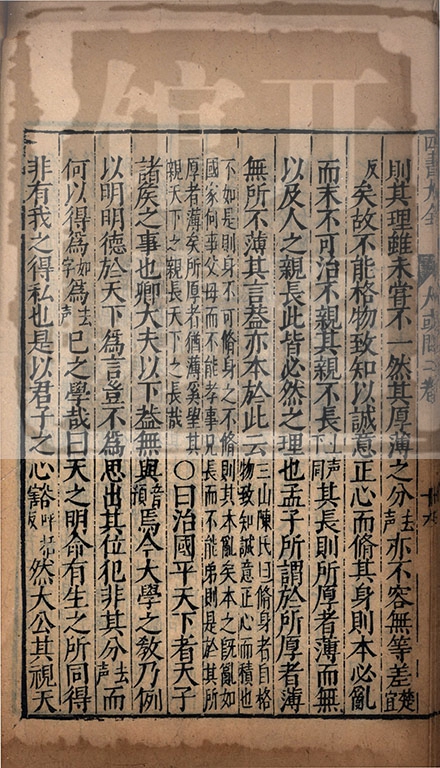 則其理雖未嘗不一然其厚薄之分去聲亦不容無等差楚宜
反矣故不能格物致知以誠意正心而脩其身則本必亂
而末不可治不親其親不長上聲下同其長則所厚者薄而無
以及人之親長此皆必然之理也孟子所謂於所厚者薄
無所不薄其言蓋亦本於此云三山陳氏曰脩身者自格物致知誠意正心而積也
不如是則身不可脩身之不脩則其本亂矣本之既亂如
國家何事父母而不能孝事兄長而不能弟則是於其所
厚者薄矣所厚者猶薄奚望其親天下之親長天下之長哉〇曰治國平天下者天子
諸矦之事也卿大夫以下蓋無與音預焉今大學之敎乃例
以明明德於天下爲言豈不爲思出其位犯非其分去聲而
何以得爲如字爲去聲己之學哉曰天之明命有生之所同得
非有我之得私也是以君子之心豁呼括反然大公其視天